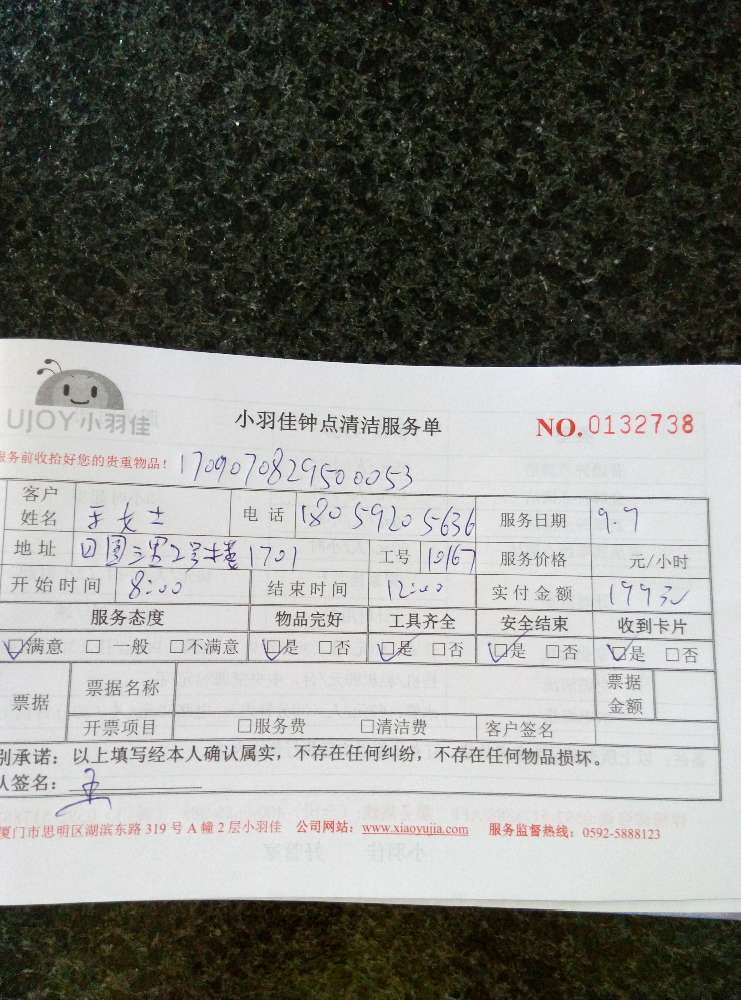 UJOY·小羽佳
小羽佳钟点清洁服务单
NO. 0132738
服务前收拾好您的贵重物品! 1709070829500053
客户姓名 王女士 电话 18059205636 服务日期 9.7
地址 2号楼1701 工号 10167 服务价格 元/小时
开始时间 8:00 结束时间 12:00 实付金额
服务态度 物品完好 工具齐全 安全结束 收到卡片
☑满意 □一般 □不满意 ☑是 □否 ☑是 □否 ☑是 □否 ☑是 □否
票据 票据名称 票据金额
开票项目 □服务费 □清洁费 客户签名
别承诺:以上填写经本人确认属实,不存在任何纠纷,不存在任何物品损坏。
人签名: 王
厦门市思明区湖滨东路 319 号 A 幢 2 层小羽佳 公司网站:www.xiaoyujia.com 服务监督热线:0592-5888123